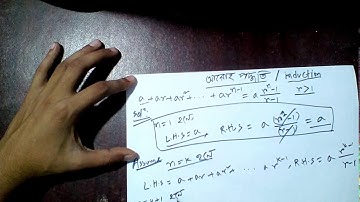 আরোহ পদ্ধতি / induction
a + ar + ar² + ... + arⁿ⁻¹ = a (rⁿ-1)/(r-1) r>1
Solⁿ:
n=1 হলে
L.H.S = a, R.H.S = a (r¹-1)/(r-1) = a
Assume n=k হলে
L.H.S = a + ar + ar² + ... a rᵏ⁻¹, R.H.S = a
হলে